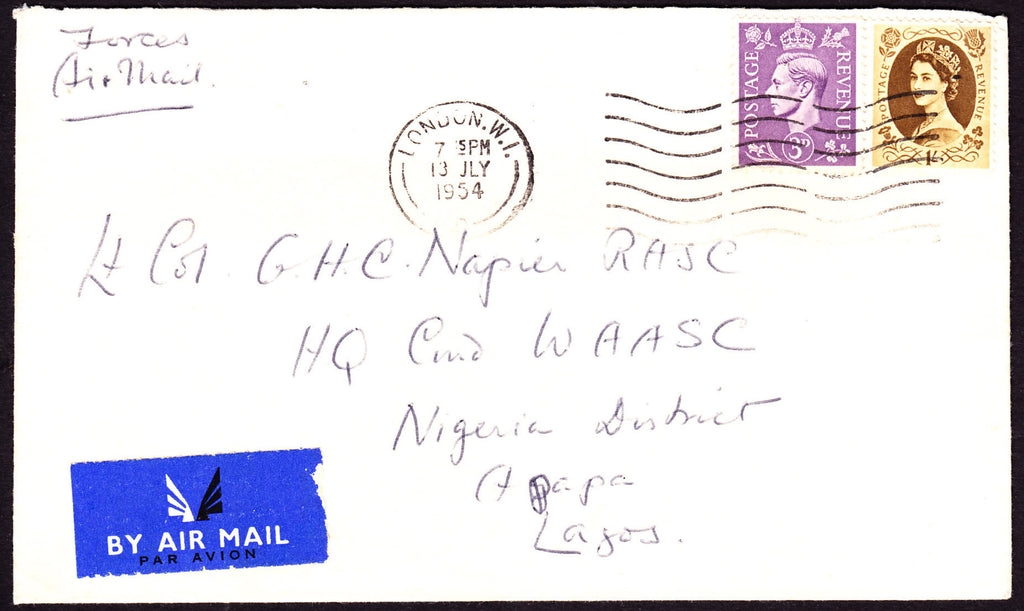 Forces
Air Mail.
POSTAGE REVENUE
3D
POSTAGE REVENUE
1/-
LONDON.W.1.
7 15PM
13 JLY
1954
Lt Col. G.H.C. Napier RASC
HQ Cmd WAASC
Nigeria District
Apapa
Lagos.
BY AIR MAIL
PAR AVION